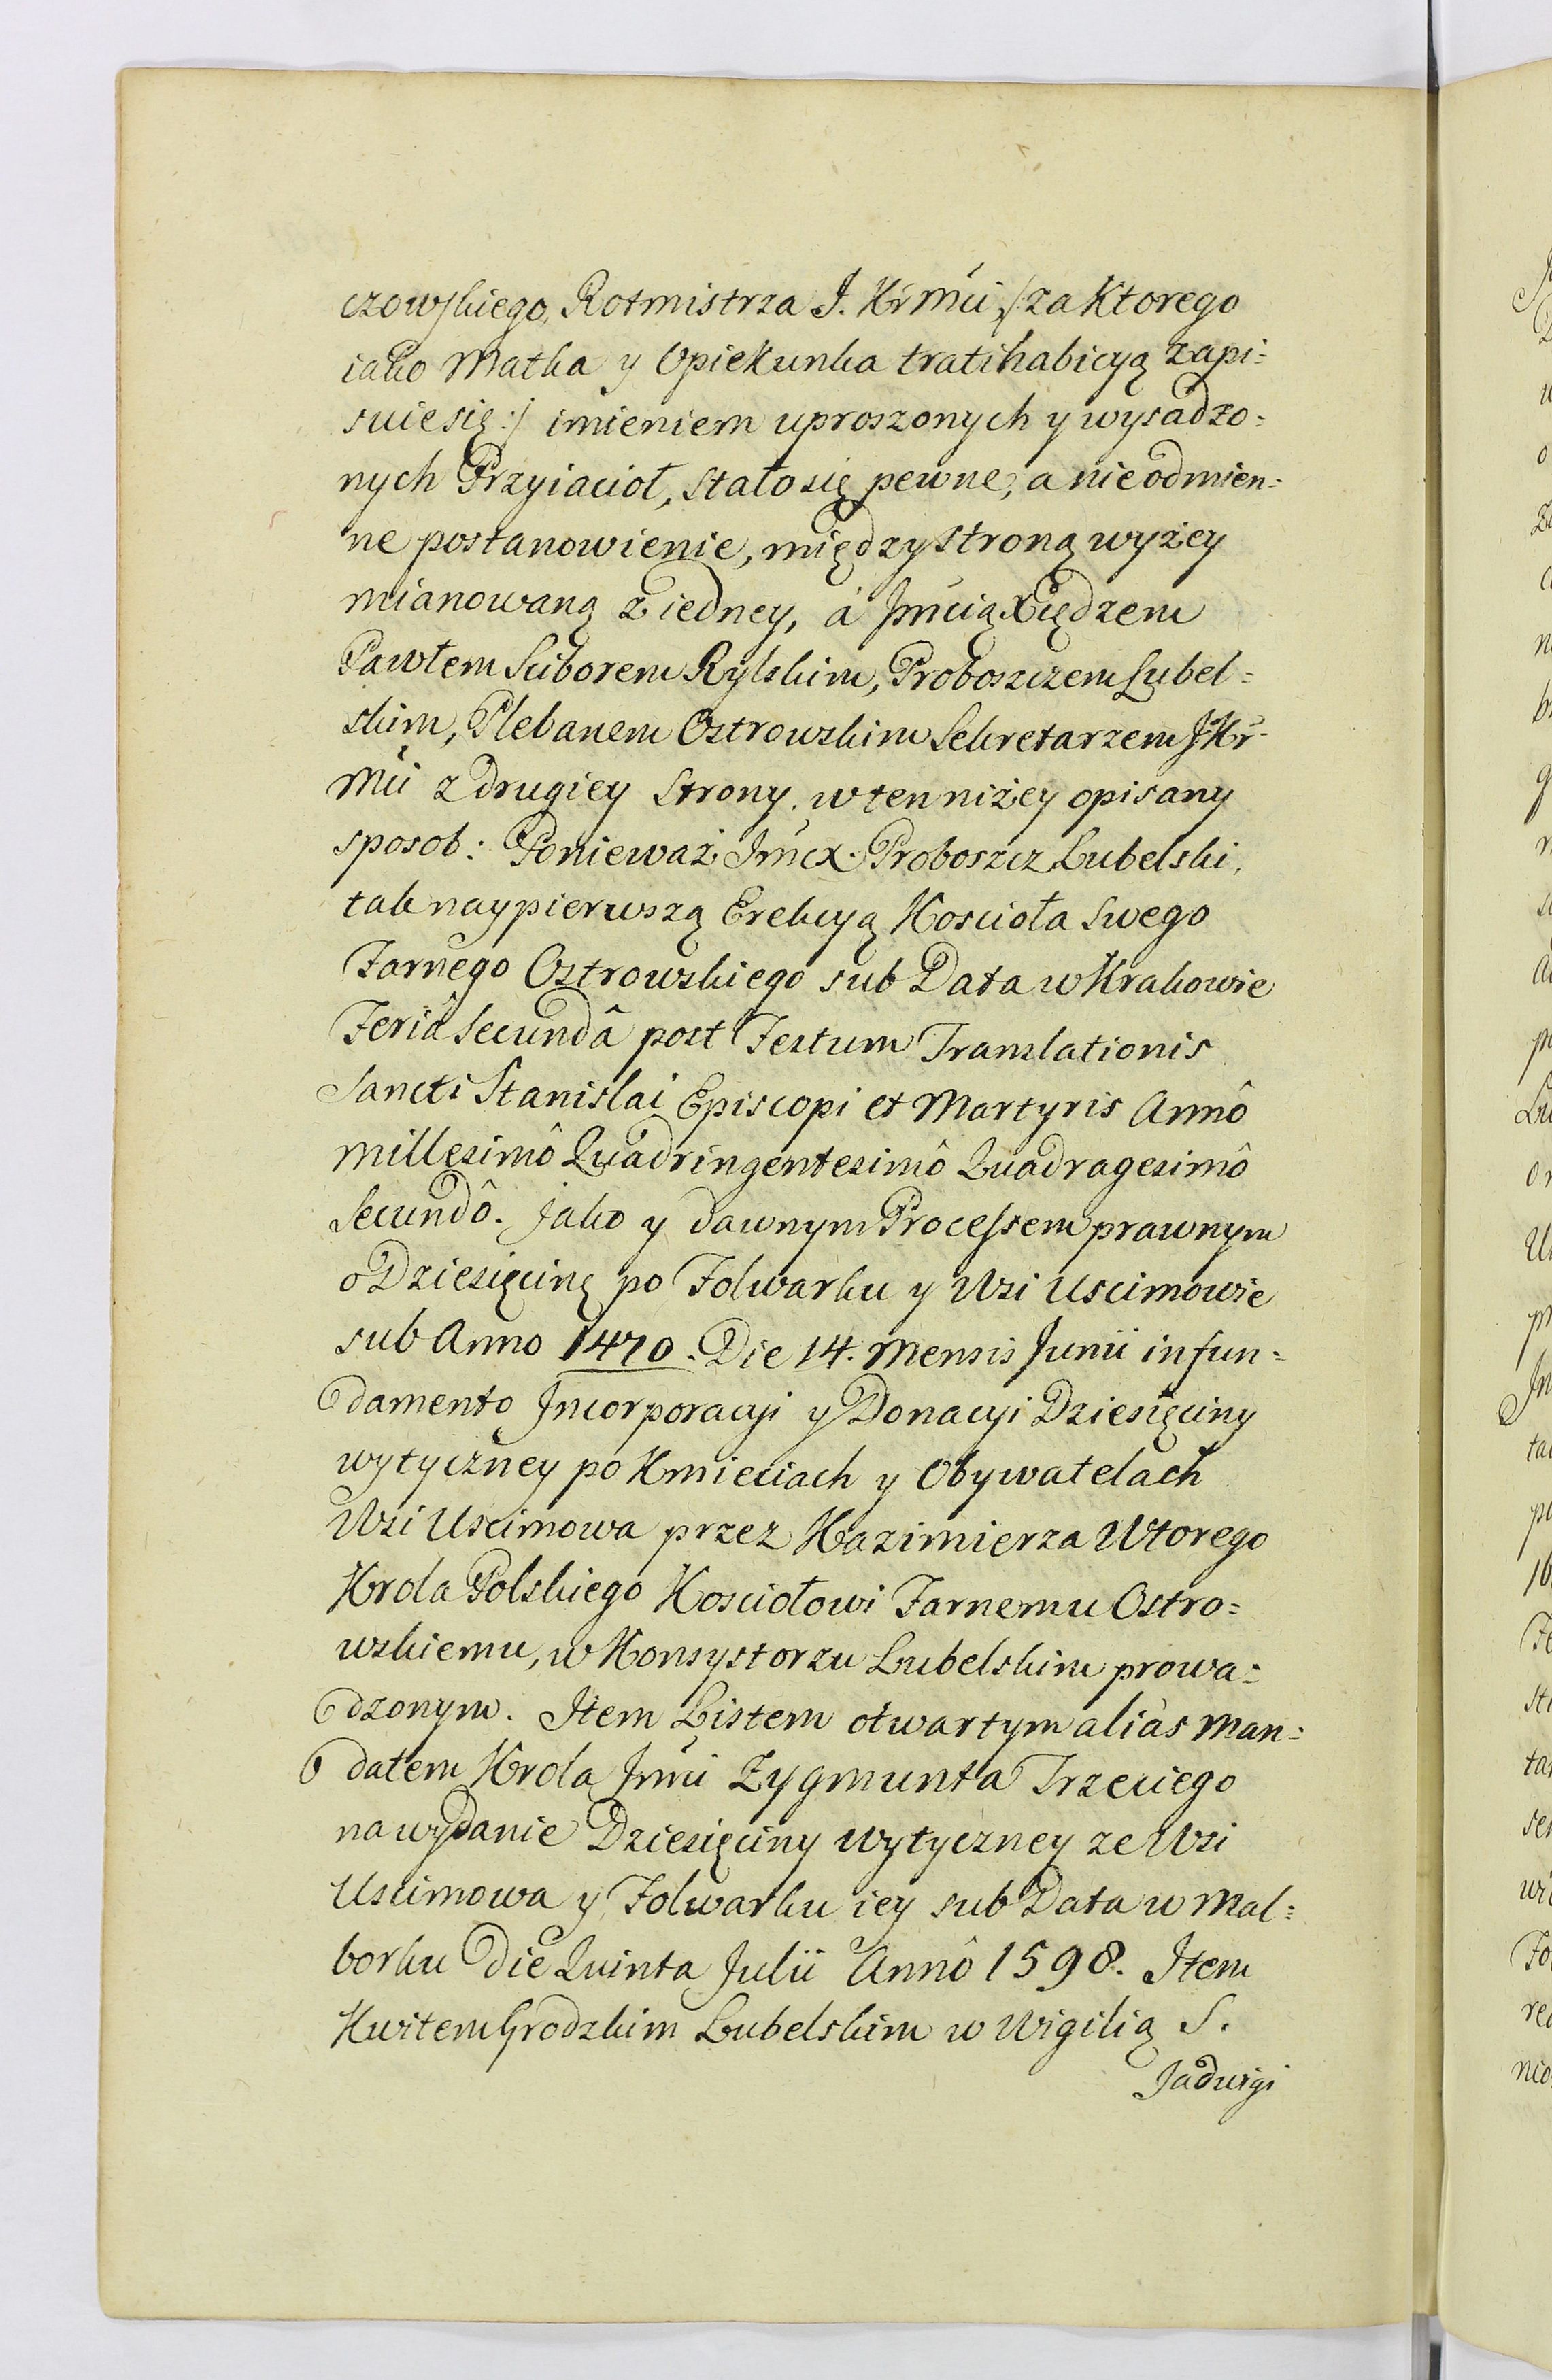 czowskiego, Rotmistrza J. Kr Mci, /: za Ktorego
iako Matka y Opiekunka tratihabicyą zapi=
suie się :/ imieniem uproszonych y wysadzo=
nych Przyiacioł, stało się pewne, a nieodmien=
ne postanowienie, między stroną wyżey
mianowaną z iedney, á Jmcią Xiędzem
Pawłem Sciborem Rylskim, Proboszczem Lubel=
skim, Plebanem Ostrowskim Sekretarzem J. Kr
Mci z drugiey strony. w ten niżey opisany
sposob: Ponieważ Jmcx. Proboszcz Lubelski,
tak naypierwszą Erekcyą Koscioła swego
Farnego Ostrowskiego sub Data w Krakowie
Feriâ Secundâ post Festum Translationis
Sancti Stanislai Episcopi et Martyris Annô
millesimô Quadringentesimô Quadragesimô
Secundô. Jako y dawnym Processem prawnym
o Dziesięcinę po Folwarku y Wsi Uscimowie
sub Anno 1470. Die 14. Mensis Junii in fun=
damento Jncorporacyi y Donacyi Dziesięciny
wytyczney po Kmieciach y Obywatelach
Wsi Uscimowa przez Kazimierza Wtorego
Krola Polskiego Kosciołowi Farnemu Ostro=
wskiemu, w Konsystorzu Lubelskim prowa=
dzonym. Jtem Listem otwartym aliàs Man=
datem Krola Jmci Zygmunta Trzeciego
na wydanie Dziesięciny wytyczney ze Wsi
Uscimowa y Folwarku iey sub Data w Mal=
borku Die Quinta Julii Annô 1598. Jtem
Kwitem Grodzkim Lubelskim w Wigilią S.
Jadwigi